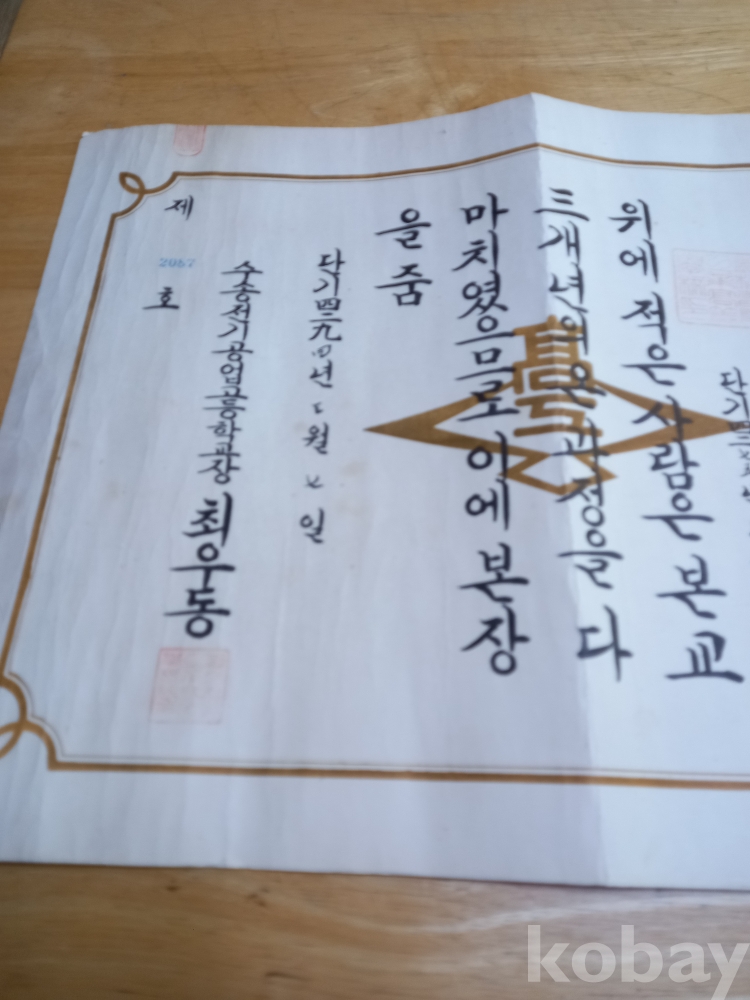 단기四
위에 적은 사람은 본교
三개년의 온 과정을 다
마치였으므로 이에 본장
을 줌
단기四二九四년 월 일
수송전기공업고등학교장 최우동
제 호
kobay